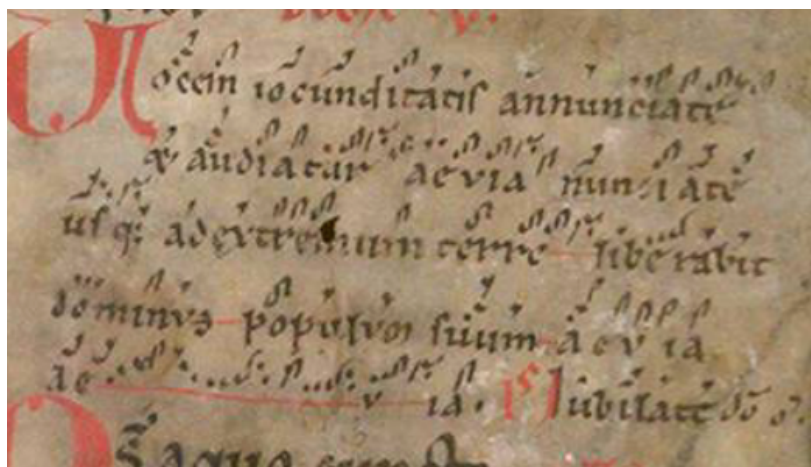 Vocem iocunditatis annunciate
& audiatur aevia nunciate
usq; ad extremum terre liberabit
dominus populum suum aevia
ae v ia. Iubilate deo o